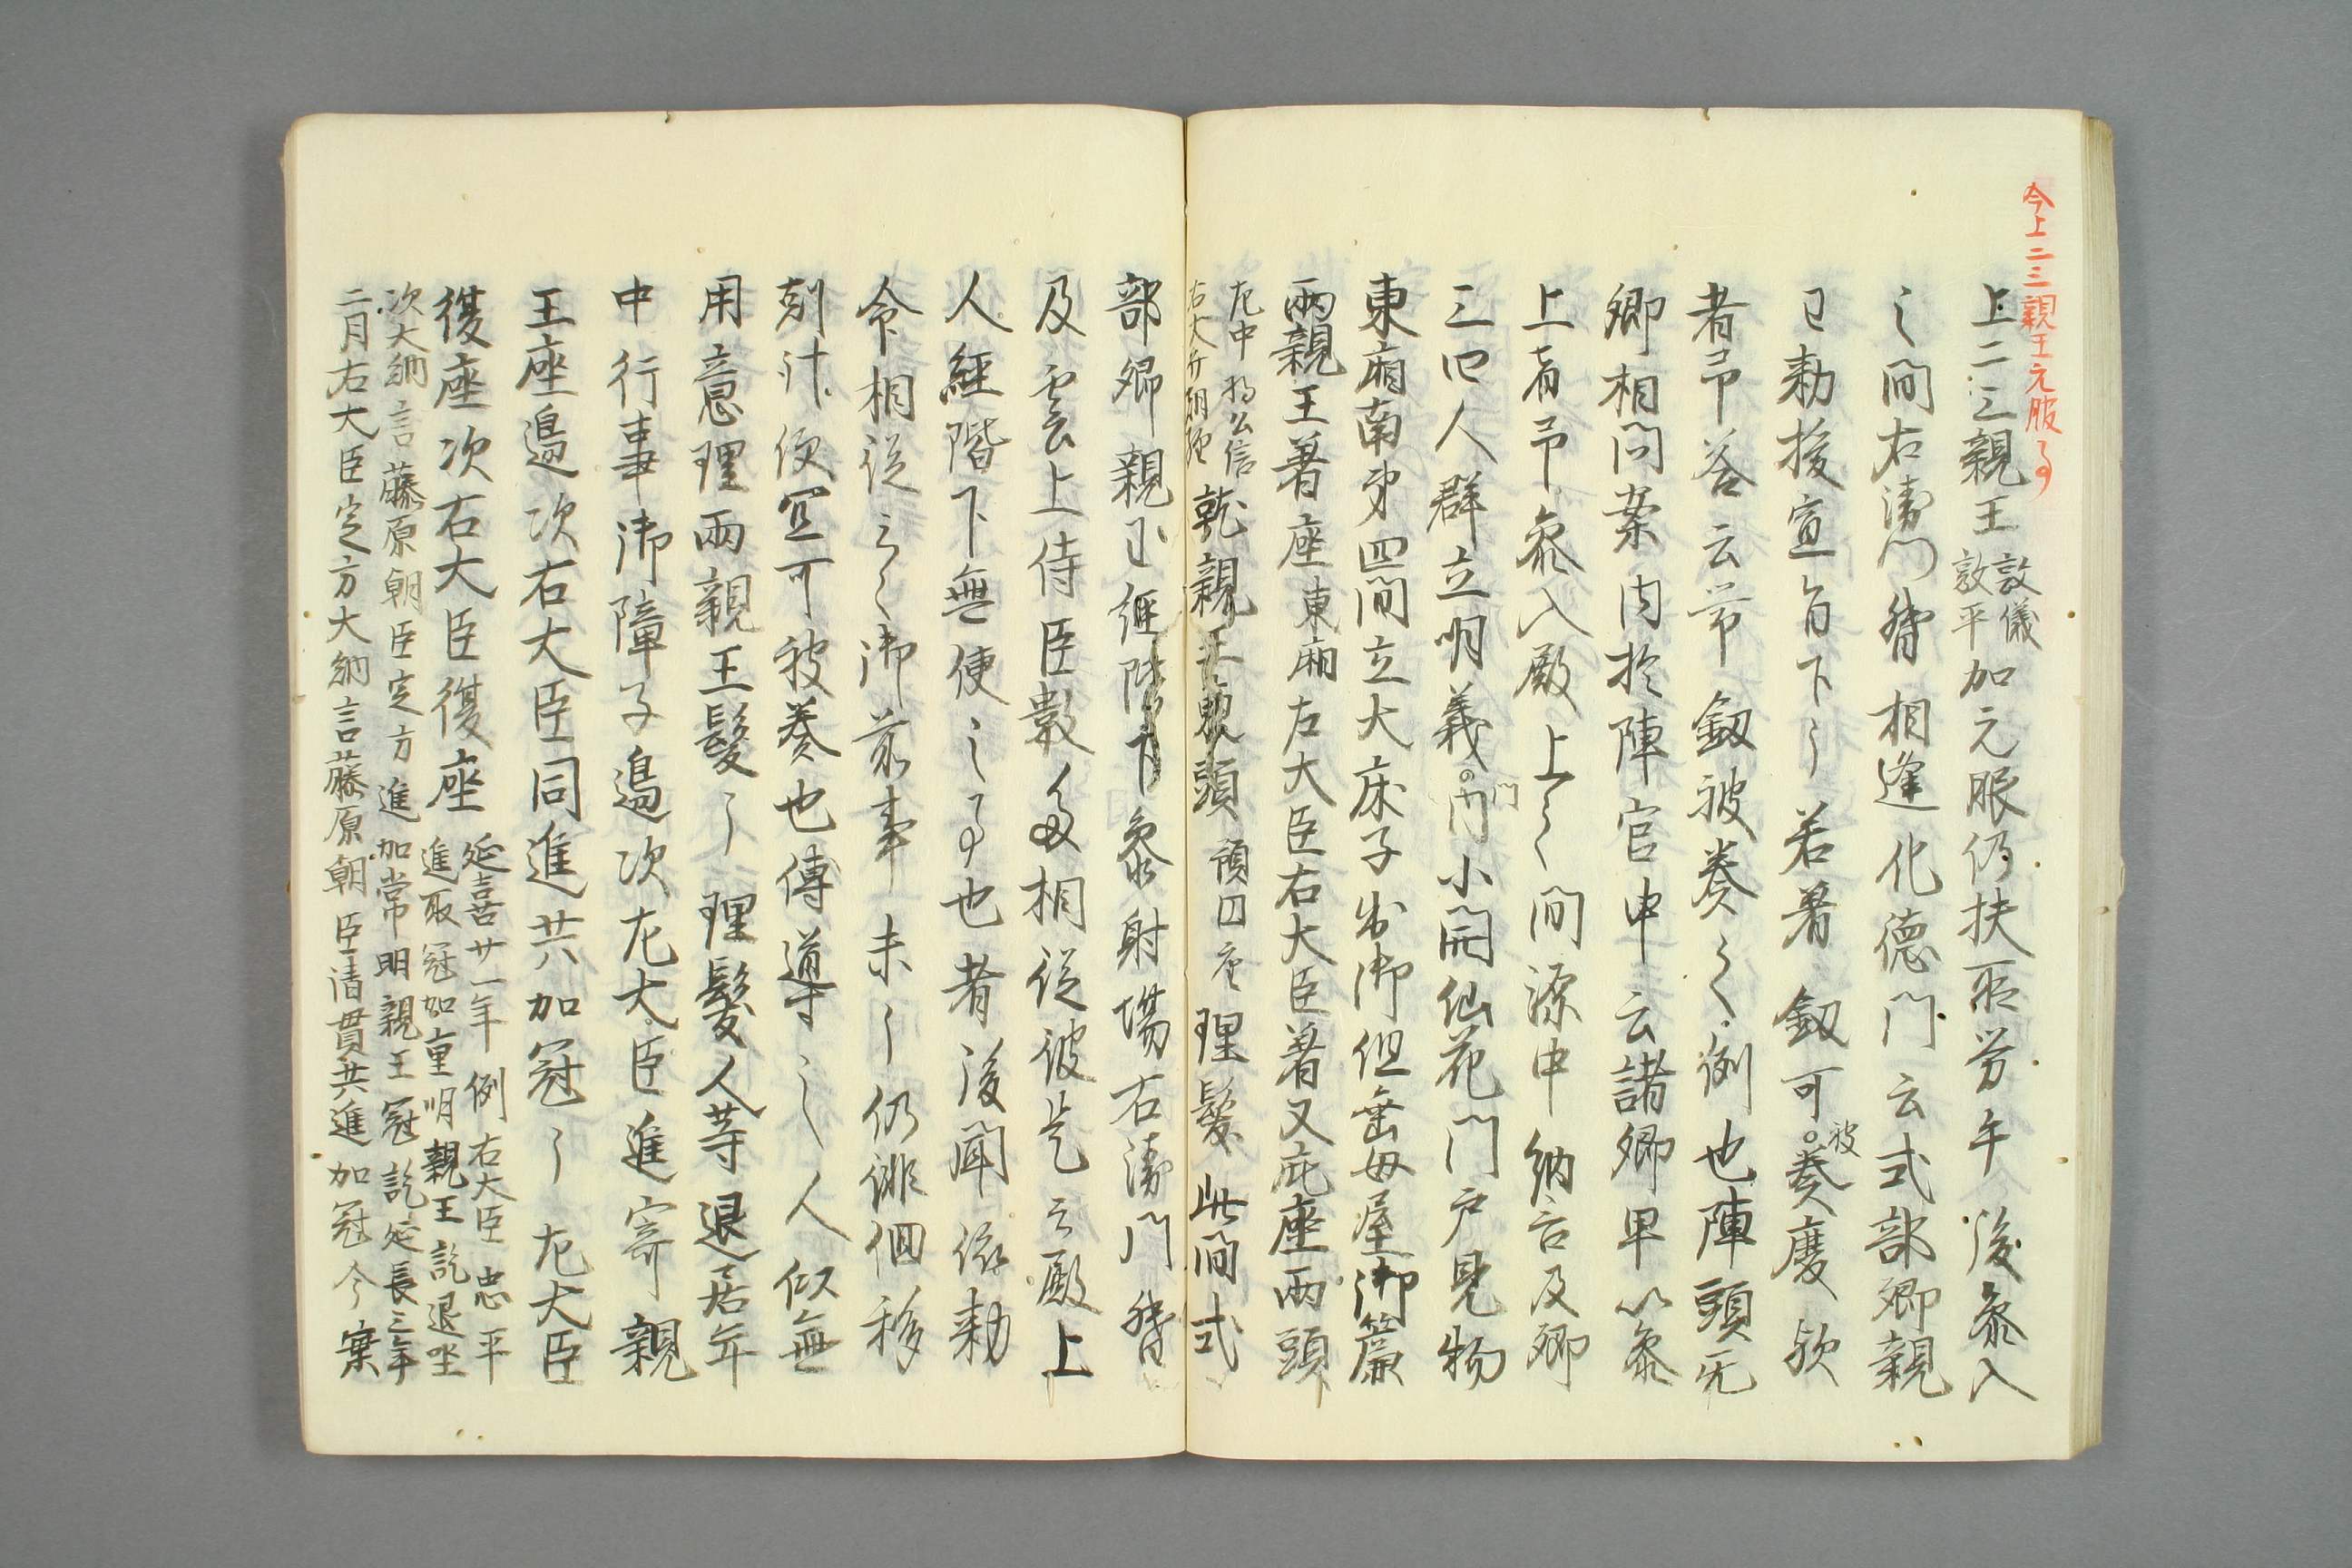 今上二三親王元服事
上二三親王敦儀
敦平加元服仍扶所労午後参入
之間右衛門督相逢化徳門云式部卿親
王勅授宣旨下了若着釼可被奏慶欤
者予答云帯釼被奏之例也陣頭无
卿相問案内於陣官申云諸卿早以参
上者予参入殿上之間源中納言及卿
三四人群立明義門内小開仙花門戸見物
東廂南第四間立大床子出御但垂母屋御簾
両親王著座東廂左大臣右大臣著又庇座両頭
左中将公信
右大弁朝経就親王円頭預円座理髪此間式
部卿親王経階下参射場右衛門督
及雲上侍臣数多相従彼是云殿上
人経階下無便之事也者後聞依勅
令相従之御前事未了仍徘徊移
刻汁便宜可被奏也傅導之人似無
用意理両親王髪了理髪人等退居年
中行事御障子邊次左大臣進寄親
王座邊次右大臣同進共加冠了左大臣
復座次右大臣復座延喜廿一年例右大臣忠平
進取冠加重明親王訖退坐
次大納言藤原朝臣定方進加常明親王冠訖延長三年
二月右大臣定方大納言藤原朝臣清貫共進加冠今案